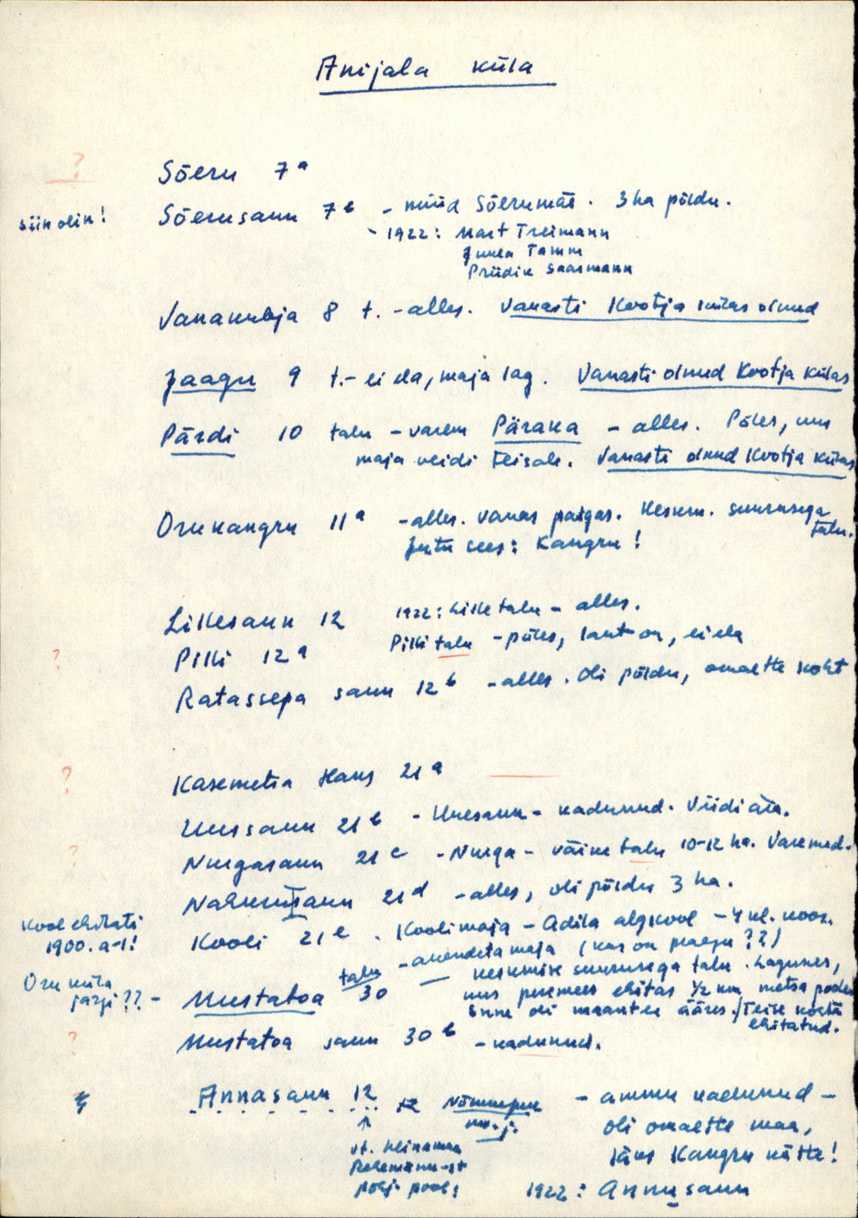 Anijala küla
? Sõeru 7ª
siin olin! Sõerusaun 7ᵇ - nüüd Sõerumäe. 3 ha põldu.
- 1922: Mart Treimann
Juula Tamm
Priidik Saarmann
Vananubja 8 t. - alles. Vanasti Kootja külas olnud
Jaagu 9 t. - ei ela, maja lag. Vanasti olnud Kootja külas
Pärdi 10 talu - varem Päraka - alles. Põles, uus
maja veidi teisale. Vanasti olnud Kootja külas
Orukangru 11ª - alles. vanas paigas. Keskm. suurusega talu.
Jutu sees: Kangru!
Likesaun 12 1922: Like talu - alles.
? Pilli 12ª Pilli talu - põles, laut on, ei ela
Ratassepa saun 12ᵇ - alles. Oli põldu, omaette koht
? Kasemetsa Hans 21ª
Uussaun 21ᵇ - Uuesaun - kadunud. Viidi ära.
? Nurgasaun 21ᶜ - Nurga - väike talu 10-12 ha. Varemed.
saun 21ᵈ - alles, oli põldu 3 ha.
Kool ehitati
1900. a-l! Kooli 21ᵉ. Koolimaja - Adila algkool - 4 kl. kool.
- maja (kas on praegu??)
Oru küla
järgi?? - Mustatoa talu 30 - keskmise suurusega talu. Lagunes,
uus peremees ehitas ½ km metsa poole
Enne oli maantee ääres. / Teise kohta
ehitatud.
? Mustatoa saun 30ᵇ - kadunud.
Annasaun 12 12 - ammu kadunud -
oli omaette maa,
läks Kangru kätte!
↑
vt. heinamaa
põhja pool!
1922: Annusaun